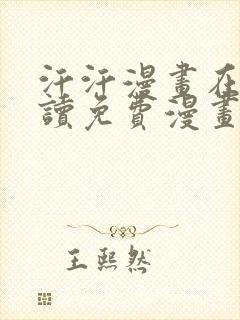 汗汗漫畫在
讀免費漫畫
王熙然